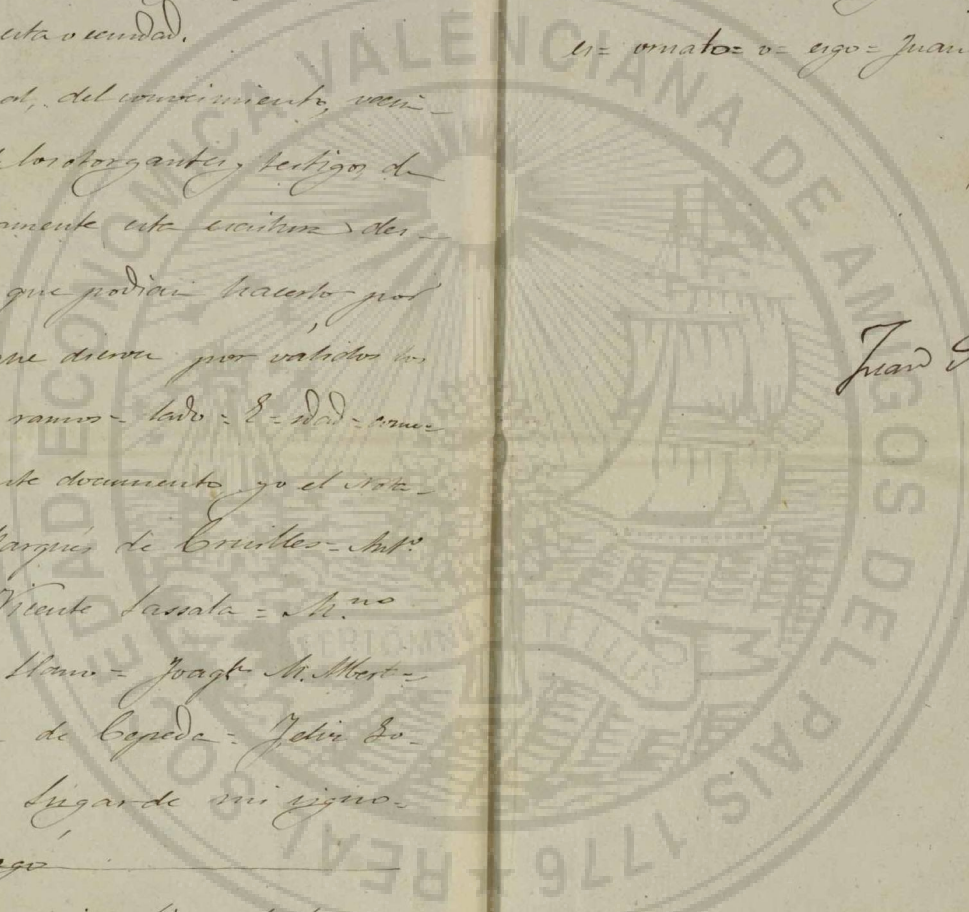 esta vecindad.
del conocimiento, vecin-
los otorgantes, testigos de
amente esta escritura des-
que podian hacerlo por
que dieron por validos los
ramos = lado = E = idad = como =
nte documento yo el Nota-
Marques de Cruilles = Antº
Vicente Lassala = M.no
Llano = Joaqn M. Albert =
de Cepeda = Felix
Lugar de mi signo =
es = ornato = o = ergo = Juan
Juan
REAL SOCIEDAD ECONOMICA VALENCIANA DE AMIGOS DEL PAIS 1776